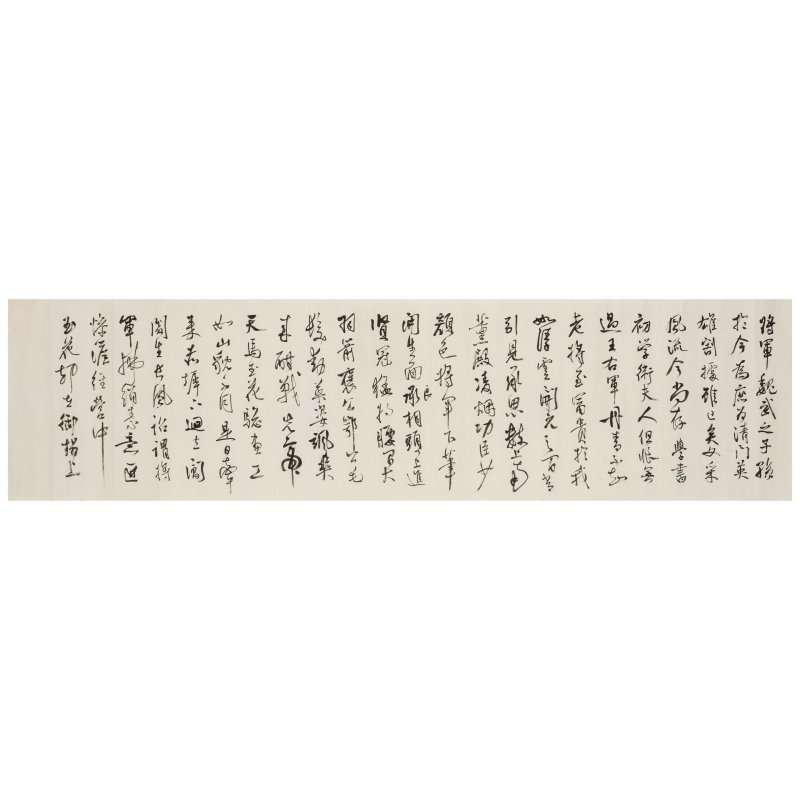 將軍魏武之子孫
於今為庶為清門英
雄割據雖已矣文采
風流今尚存學書
初學衛夫人但恨無
過王右軍丹青不知
老將至富貴於我
如浮雲開元之中常
引見承恩數上南
薰殿凌煙功臣少
顏色將軍下筆
開生面承良相頭上進
賢冠猛將腰間大
羽箭褒公鄂公毛
髮動英姿颯爽
來酣戰先帝
天馬玉花驄畫工
如山貌不同是日牽
來赤墀下迥立閶
闔生長風詔謂將
軍拂絹素意匠
慘澹經營中
玉花卻在御榻上